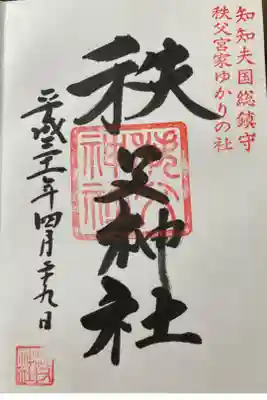 知知夫国総鎮守
秩父宮家ゆかりの社
秩父神社
秩父神社
平成三十一年四月二十九日